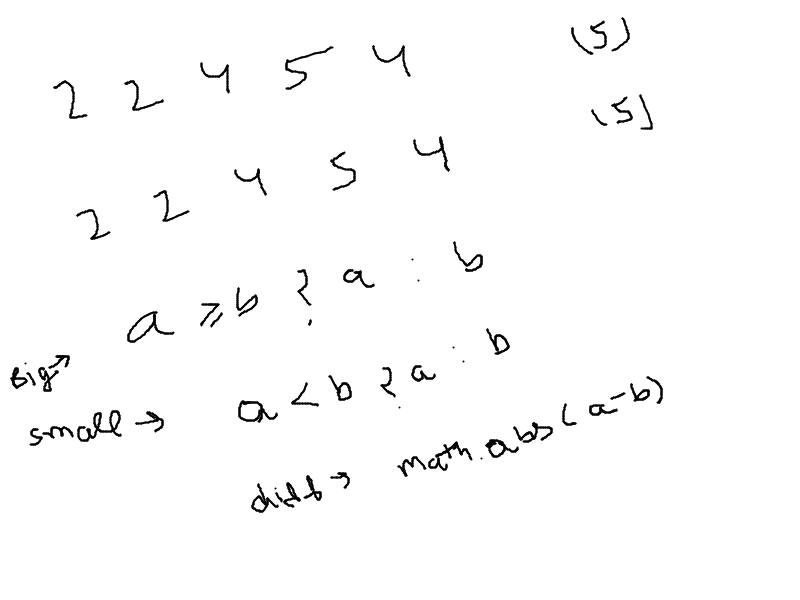 2 2 4 5 4 (5)
2 2 4 5 4 (5)
big → a >= b ? a : b
small → a < b ? a : b
diff → math.abs(a-b)